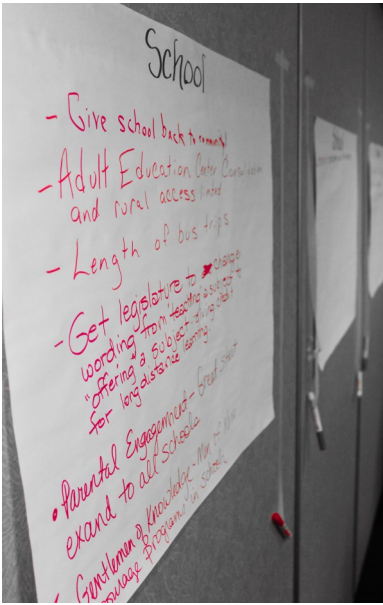 School
- Give school back to community
- Adult Education Center Consolidation
and rural access limited
- Length of bus trips
- Get legislature to change
wording from "teaching a subject" to
"offering" a subject - giving credit
for long distance learning
• Parental Engagement - Great start
exand to all schools
- Gentlemen of Knowledge - Men of
Programs in Schools